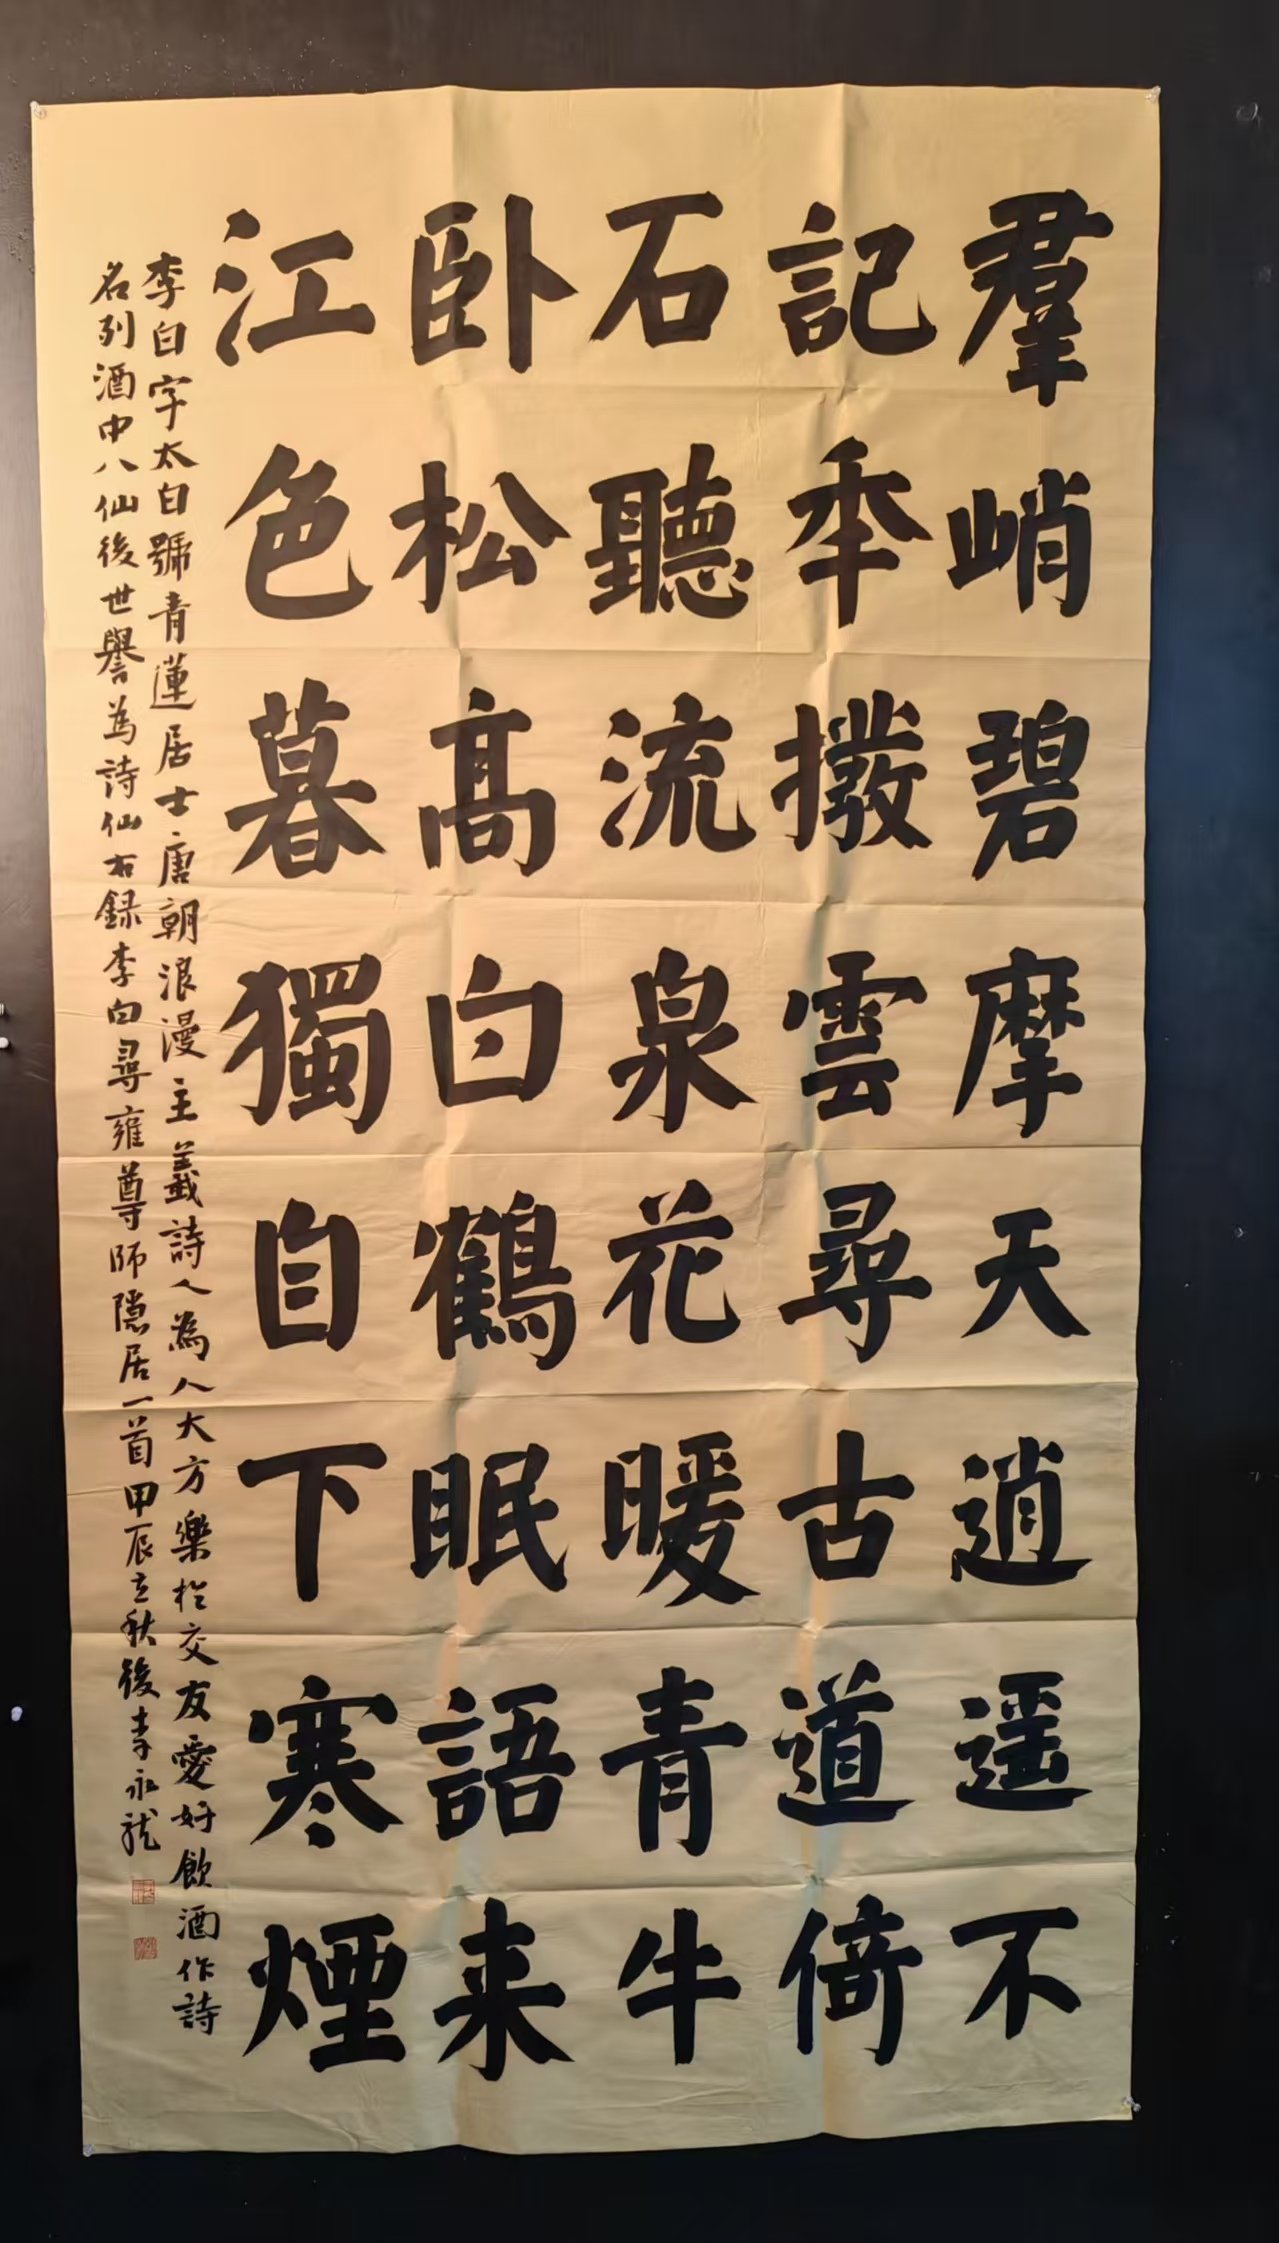 羣峭碧摩天逍遥不
記秊撥雲尋古道倚
石聽流泉花暖青牛
卧松高白鶴眠語来
江色暮獨自下寒煙
李白字太白號青蓮居士唐朝浪漫主義詩人為人大方樂於交友愛好飲酒作詩
名列酒中八仙後世譽為詩仙右録李白尋雍尊師隱居一首甲辰立秋後李永龍